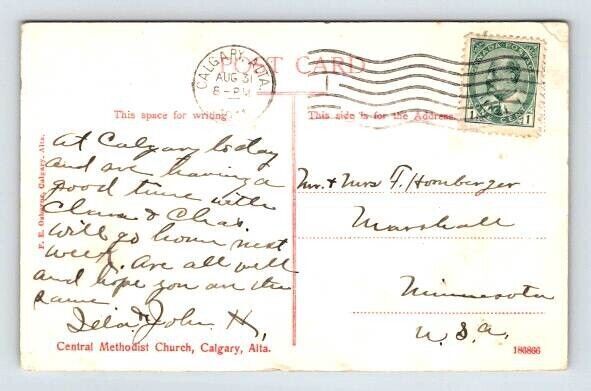 POST CARD
CALGARY, ALTA.
AUG 31
8 - PM
CANADA POSTAGE
1 CENT 1
This space for writing
This side is for the Address.
At Calgary today
and are having a
good time with
Clara & Chas.
Will go home next
week. Are all well
and hope you are the
same
& John H,
Mr. & Mrs F. Hornberger
Marshall
Minnesota
U.S.A.
F. E. Osborne, Calgary, Alta.
Central Methodist Church, Calgary, Alta.
186866